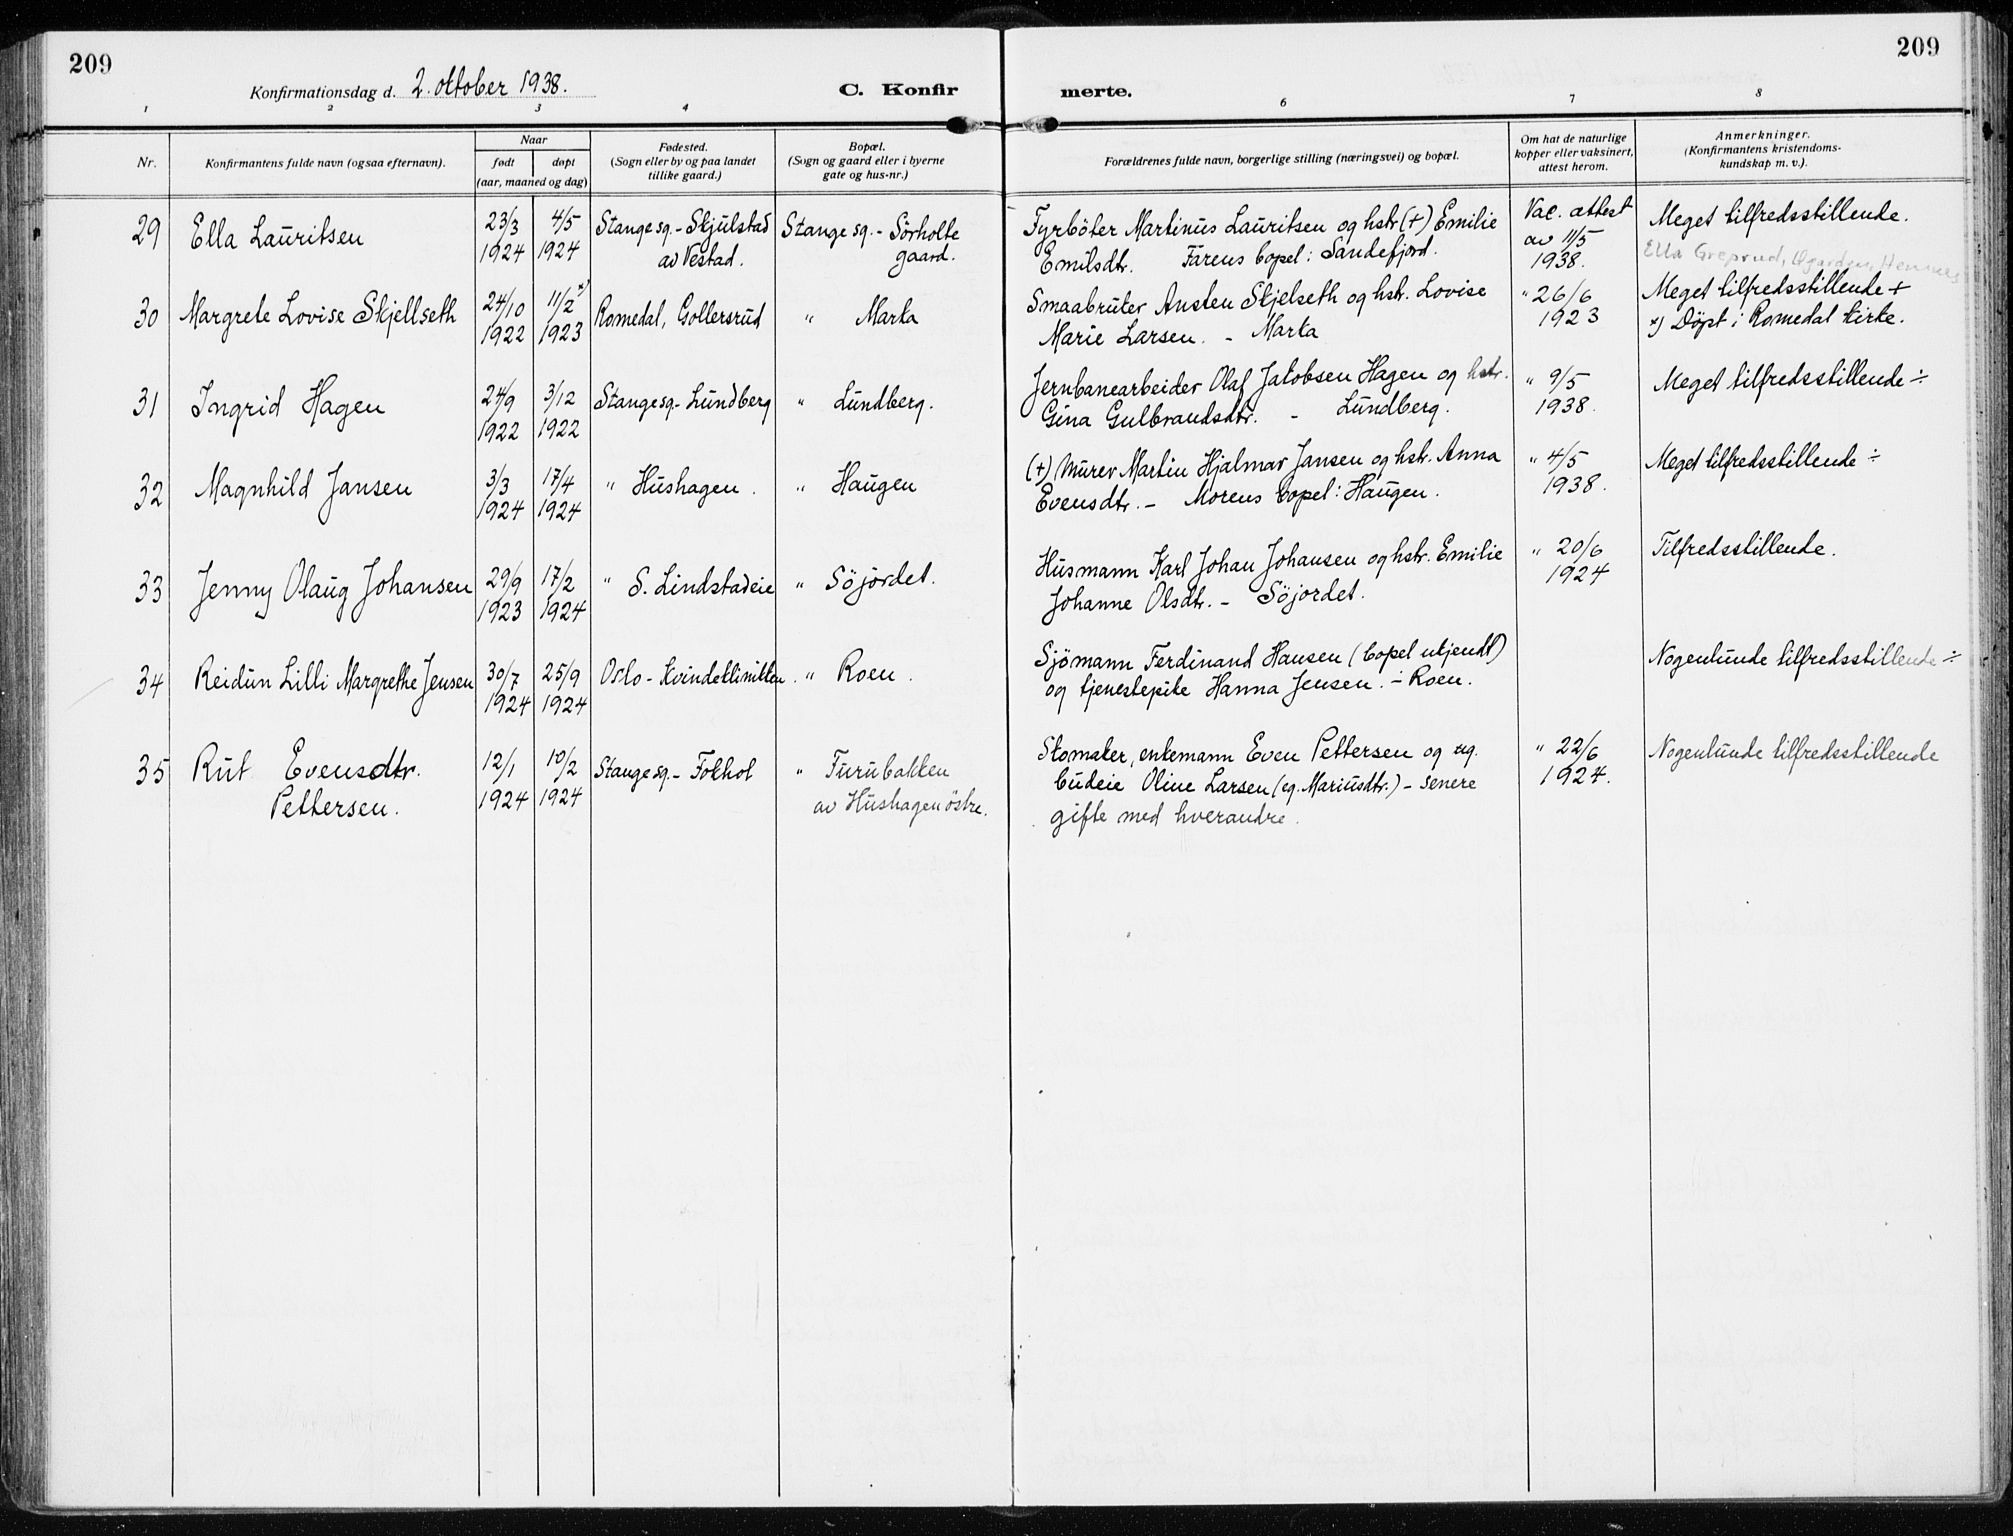 209
209
Konfirmationsdag d. 2. oktober 1938.
C. Konfir
merte.
1 2 3 4 5 6 7 8
Nr.
Konfirmantens fulde navn (ogsaa efternavn).
Naar
født
døpt
(aar, maaned og dag)
Fødested.
(Sogn eller by og paa landet
tillike gaard.)
Bopæl.
(Sogn og gaard eller i byerne
gate og hus-nr.)
Forældrenes fulde navn, borgerlige stilling (næringsvei) og bopæl.
Om hat de naturlige
kopper eller vaksinert,
attest herom.
Anmerkninger.
(Konfirmantens kristendoms-
kundskap m. v.).
29 Ella Lauritsen 23/3 4/5 Stange sg. - Skjulstad Stange sg. - Sörholte Fyrböter Martinus Lauritsen og hstr (+) Emilie Vac. attest Meget tilfredsstillende.
1924 1924 av Vestad. gaard. Emilsdtr. Farens bopel: Sandefjord. av 11/5
1938. Ella Greprud, Øgarden, Hemnes
30 Margrete Lovise Skjellseth 24/10 11/2 *) Romedal, Gollersrud " Marka Smaabruker Austen Skjelseth og hstr. Lovise " 26/6 Meget tilfredsstillende +
1922 1923 Marie Larsen. - Marka 1923 *) Döpt i Romedal kirke.
31 Ingrid Hagen 24/9 3/12 Stange sg. - Lundberg " Lundberg. Jernbanearbeider Olaf Jakobsen Hagen og hstr. " 9/5 Meget tilfredsstillende ÷
1922 1922 Gina Gulbrandsdtr. - Lundberg. 1938.
32 Magnhild Jansen 3/3 17/4 " Hushagen. " Haugen (+) Murer Martin Hjalmar Jansen og hstr. Anna " 4/5 Meget tilfredsstillende ÷
1924 1924 Evensdtr. - Morens bopel: Haugen. 1938.
33 Jenny Olaug Johansen 29/9 17/2 " S. Lindstadeie " Söjordet. Husmann Karl Johan Johansen og hstr. Emilie " 20/6 Tilfredsstillende.
1923 1924 Johanne Olsdtr. - Söjordet. 1924
34 Reidun Lilli Margrethe Jensen 30/7 25/9 Oslo - Kvindeklinikken. " Roen. Sjömann Ferdinand Hansen (bopel ukjendt) Nogenlunde tilfredsstillende ÷
1924 1924 og tjenestepike Hanna Jensen. - Roen.
35 Rut Evensdtr. 12/1 10/2 Stange sg. - Fokhol " Furubakken Skomaker, enkemann Even Pettersen og ug. " 22/6 Nogenlunde tilfredsstillende
Pettersen. 1924 1924 av Hushagen östre. budeie Oline Larsen (eg. Mariusdtr.) - senere 1924.
gifte med hverandre.